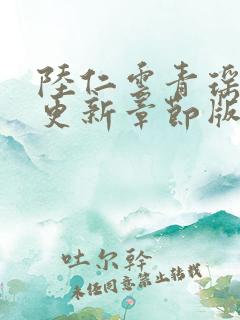 陸仁雲青瑶
更新章節版
吐尔幹
未经同意禁止转载